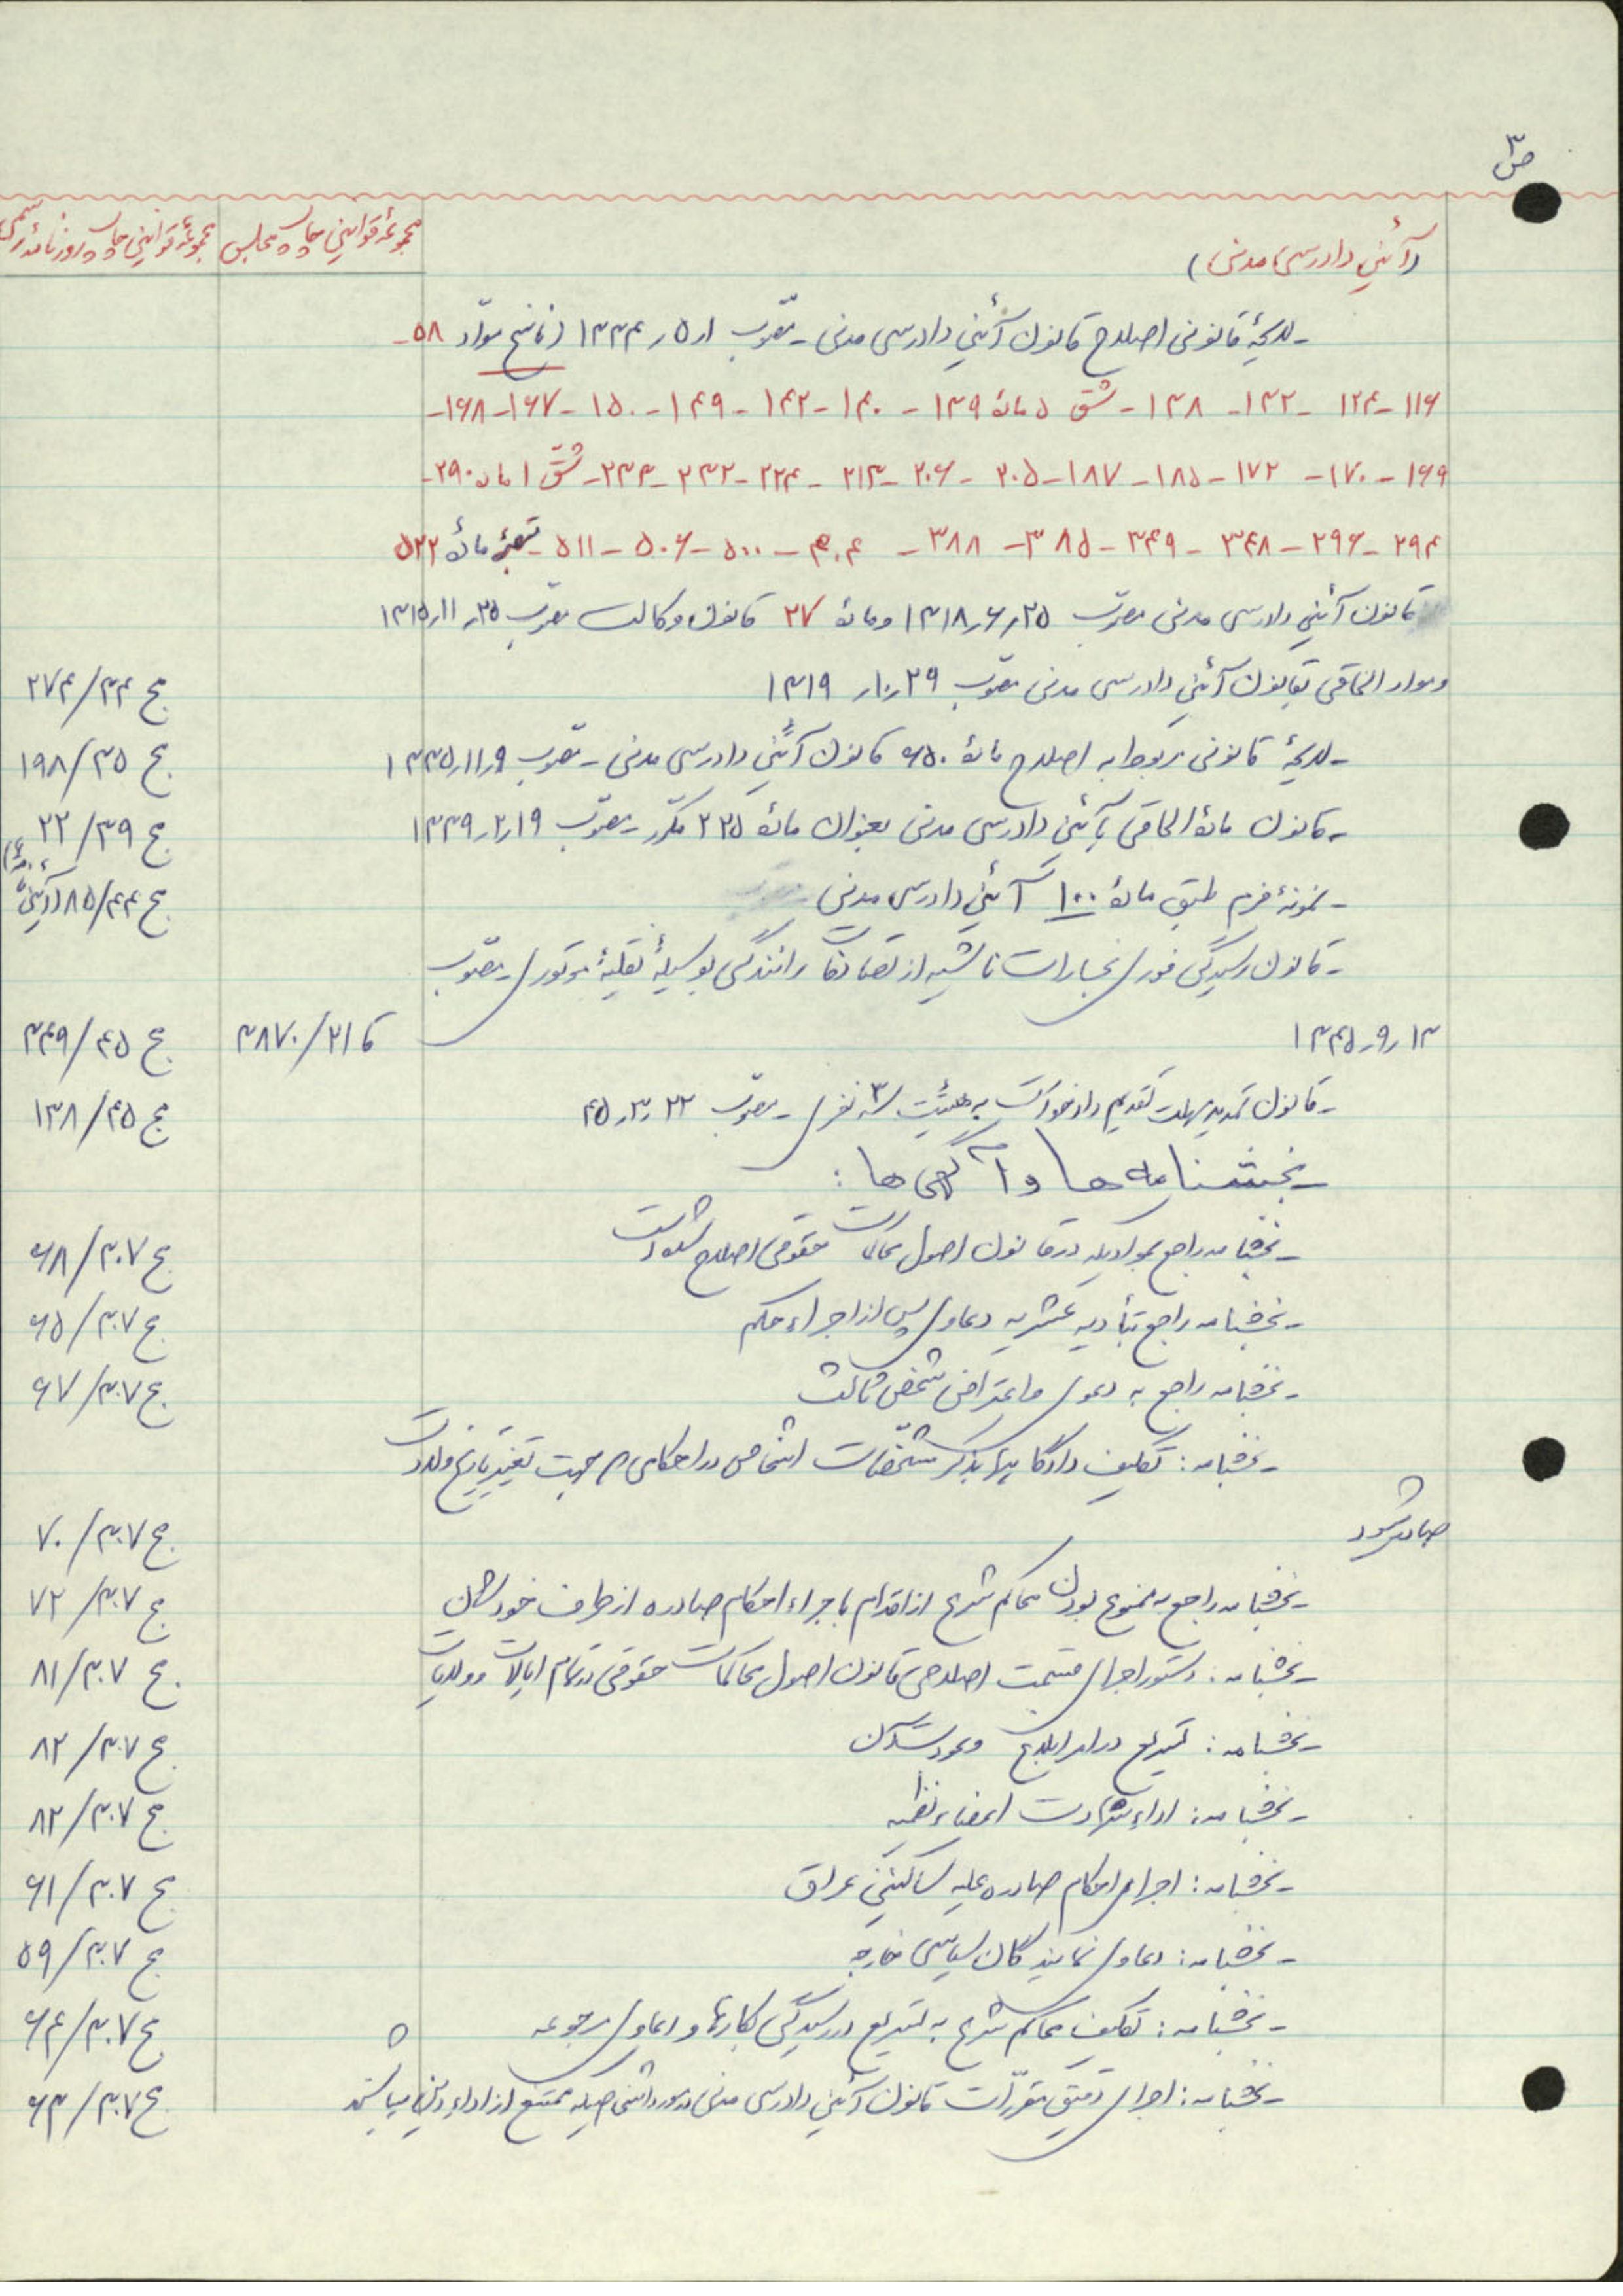 ص ۳
(آئین دادرسی مدنی) مجموعهٔ قوانین چاپ مجلس مجموعهٔ قوانین چاپ روزنامهٔ رسمی
- لایحهٔ قانونی اصلاح قانون آئین دادرسی مدنی - مصّوب ۱ر۵ر۱۳۳۴ (ناسخ موّاد ۵۸ -
۱۱۶ - ۱۲۴ - ۱۳۲ - ۱۳۸ - شق ۵ مادهٔ ۱۳۹ - ۱۴۰ - ۱۴۲ - ۱۴۹ - ۱۵۰ - ۱۶۷ - ۱۶۸ -
۱۶۹ - ۱۷۰ - ۱۷۲ - ۱۸۵ - ۱۸۷ - ۲۰۵ - ۲۰۶ - ۲۱۳ - ۲۲۴ - ۲۳۲ - ۲۳۳ - شّق ۱ ماده ۲۹۰ -
۲۹۴ - ۲۹۶ - ۳۴۸ - ۳۴۹ - ۳۸۵ - ۳۸۸ - ۴۰۳ - ۵۰۰ - ۵۰۶ - ۵۱۱ - تبصرهٔ مادهٔ ۵۲۲
قانون آئین دادرسی مدنی مصّوب ۲۵ر۶ر۱۳۱۸ و مادهٔ ۲۷ قانون وکالت مصّوب ۲۵ر۱۱ر۱۳۱۵
و مواد الحاقی بقانون آئین دادرسی مدنی مصّوب ۲۹ر۱۰ر۱۳۱۹ ج ۳۴/۲۷۴
- لایحهٔ قانونی مربوط به اصلاح مادهٔ ۶۵۰ قانون آئین دادرسی مدنی - مصّوب ۹ر۱۱ر۱۳۳۵ ج ۳۵/۱۹۸
- قانون مادهٔ الحاقی بآئین دادرسی مدنی بعنوان مادهٔ ۲۲۵ مکّرر - مصّوب ۱۹ر۲ر۱۳۳۹ ج ۳۹/۲۲
- نمونهٔ فرم طبق مادهٔ ۱۰۰ آئین دادرسی مدنی ج ۴۴/۸۵
- قانون رسیدگی فوری بخسارات ناشیه از تصادفات رانندگی بوسیلهٔ نقلیهٔ موتوری - مصّوب
۱۳ر۹ر۱۳۴۵ ق ۲۱/۳۸۷۰ ج ۴۵/۳۴۹
- قانون تمدید مهلت تقدیم دادخواست به هیئت سه نفری - مصّوب ۲۲ر۳ر۴۵ ج ۴۵/۱۳۸
- بخشنامه ها و آگهی ها :
- بخشنامه راجع بموادیکه در قانون اصول محاکمات حقوقی اصلاح شده است ج ۳۰۷/۶۸
- بخشنامه راجع بتأدیه عشریه دعاوی پس از اجراء حکم ج ۳۰۷/۶۵
- بخشنامه راجع به دعوی و اعتراض شخص ثالث ج ۳۰۷/۶۷
- بخشنامه : تکلیف دادگاهها بذکر مشخّصات اشخاص در احکامی که جهت تغییر تاریخ ولادت
صادر میشود ج ۳۰۷/۷۰
- بخشنامه راجع به ممنوع بودن محاکم شرع از اقدام باجراء احکام صادره از طرف خودشان ج ۳۰۷/۷۲
- بخشنامه : دستور اجرای قسمت اصلاحی قانون اصول محاکمات حقوقی در تمام ایالات و ولایات ج ۳۰۷/۸۱
- بخشنامه : تسریع در امر ابلاغ و عودت آن ج ۳۰۷/۸۲
- بخشنامه : اداء شهادت اعضاء نظمیه ج ۳۰۷/۸۲
- بخشنامه : اجرای احکام صادره علیه ساکنین عراق ج ۳۰۷/۶۱
- بخشنامه : دعاوی نمایندگان سیاسی خارجه ج ۳۰۷/۵۹
- بخشنامه : تکلیف محاکم شرع به تسریع در رسیدگی بکارها و دعاوی مرجوعه ج ۳۰۷/۶۴
- بخشنامه : اجرای دقیق مقرّرات قانون آئین دادرسی مدنی در مورد اشخاصیکه ممتنع از اداء دین میباشند ج ۳۰۷/۶۳